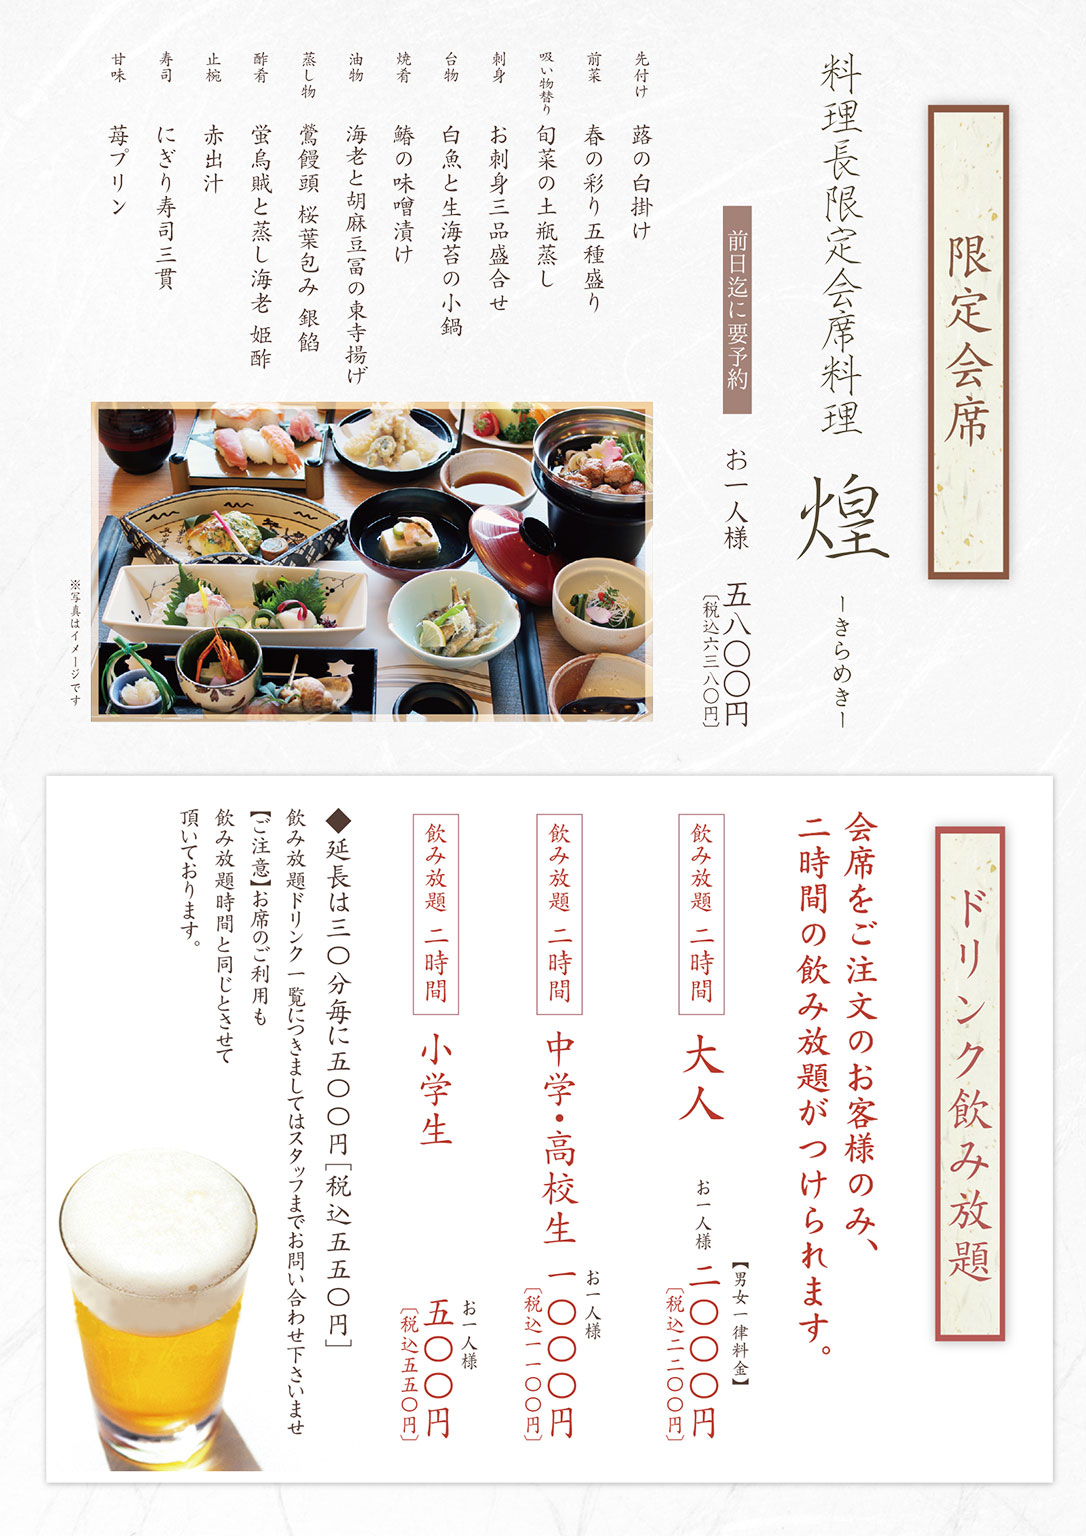 限定会席
料理長限定会席料理 煌 ーきらめきー
前日迄に要予約 お一人様 五八〇〇円
[税込六三八〇円]
先付け 蕗の白掛け
前菜 春の彩り五種盛り
吸い物替り 旬菜の土瓶蒸し
刺身 お刺身三品盛合せ
台物 白魚と生海苔の小鍋
焼肴 鰆の味噌漬け
油物 海老と胡麻豆冨の東寺揚げ
蒸し物 鶯饅頭 桜葉包み 銀餡
酢肴 蛍烏賊と蒸し海老 姫酢
止椀 赤出汁
寿司 にぎり寿司三貫
甘味 苺プリン
※写真はイメージです
ドリンク飲み放題
会席をご注文のお客様のみ、
二時間の飲み放題がつけられます。
【男女一律料金】
飲み放題 二時間 大人 お一人様 二〇〇〇円
[税込二二〇〇円]
お一人様
飲み放題 二時間 中学・高校生 一〇〇〇円
[税込一一〇〇円]
お一人様
飲み放題 二時間 小学生 五〇〇円
[税込五五〇円]
◆延長は三〇分毎に五〇〇円[税込五五〇円]
飲み放題ドリンク一覧につきましてはスタッフまでお問い合わせ下さいませ
【ご注意】お席のご利用も
飲み放題時間と同じとさせて
頂いております。